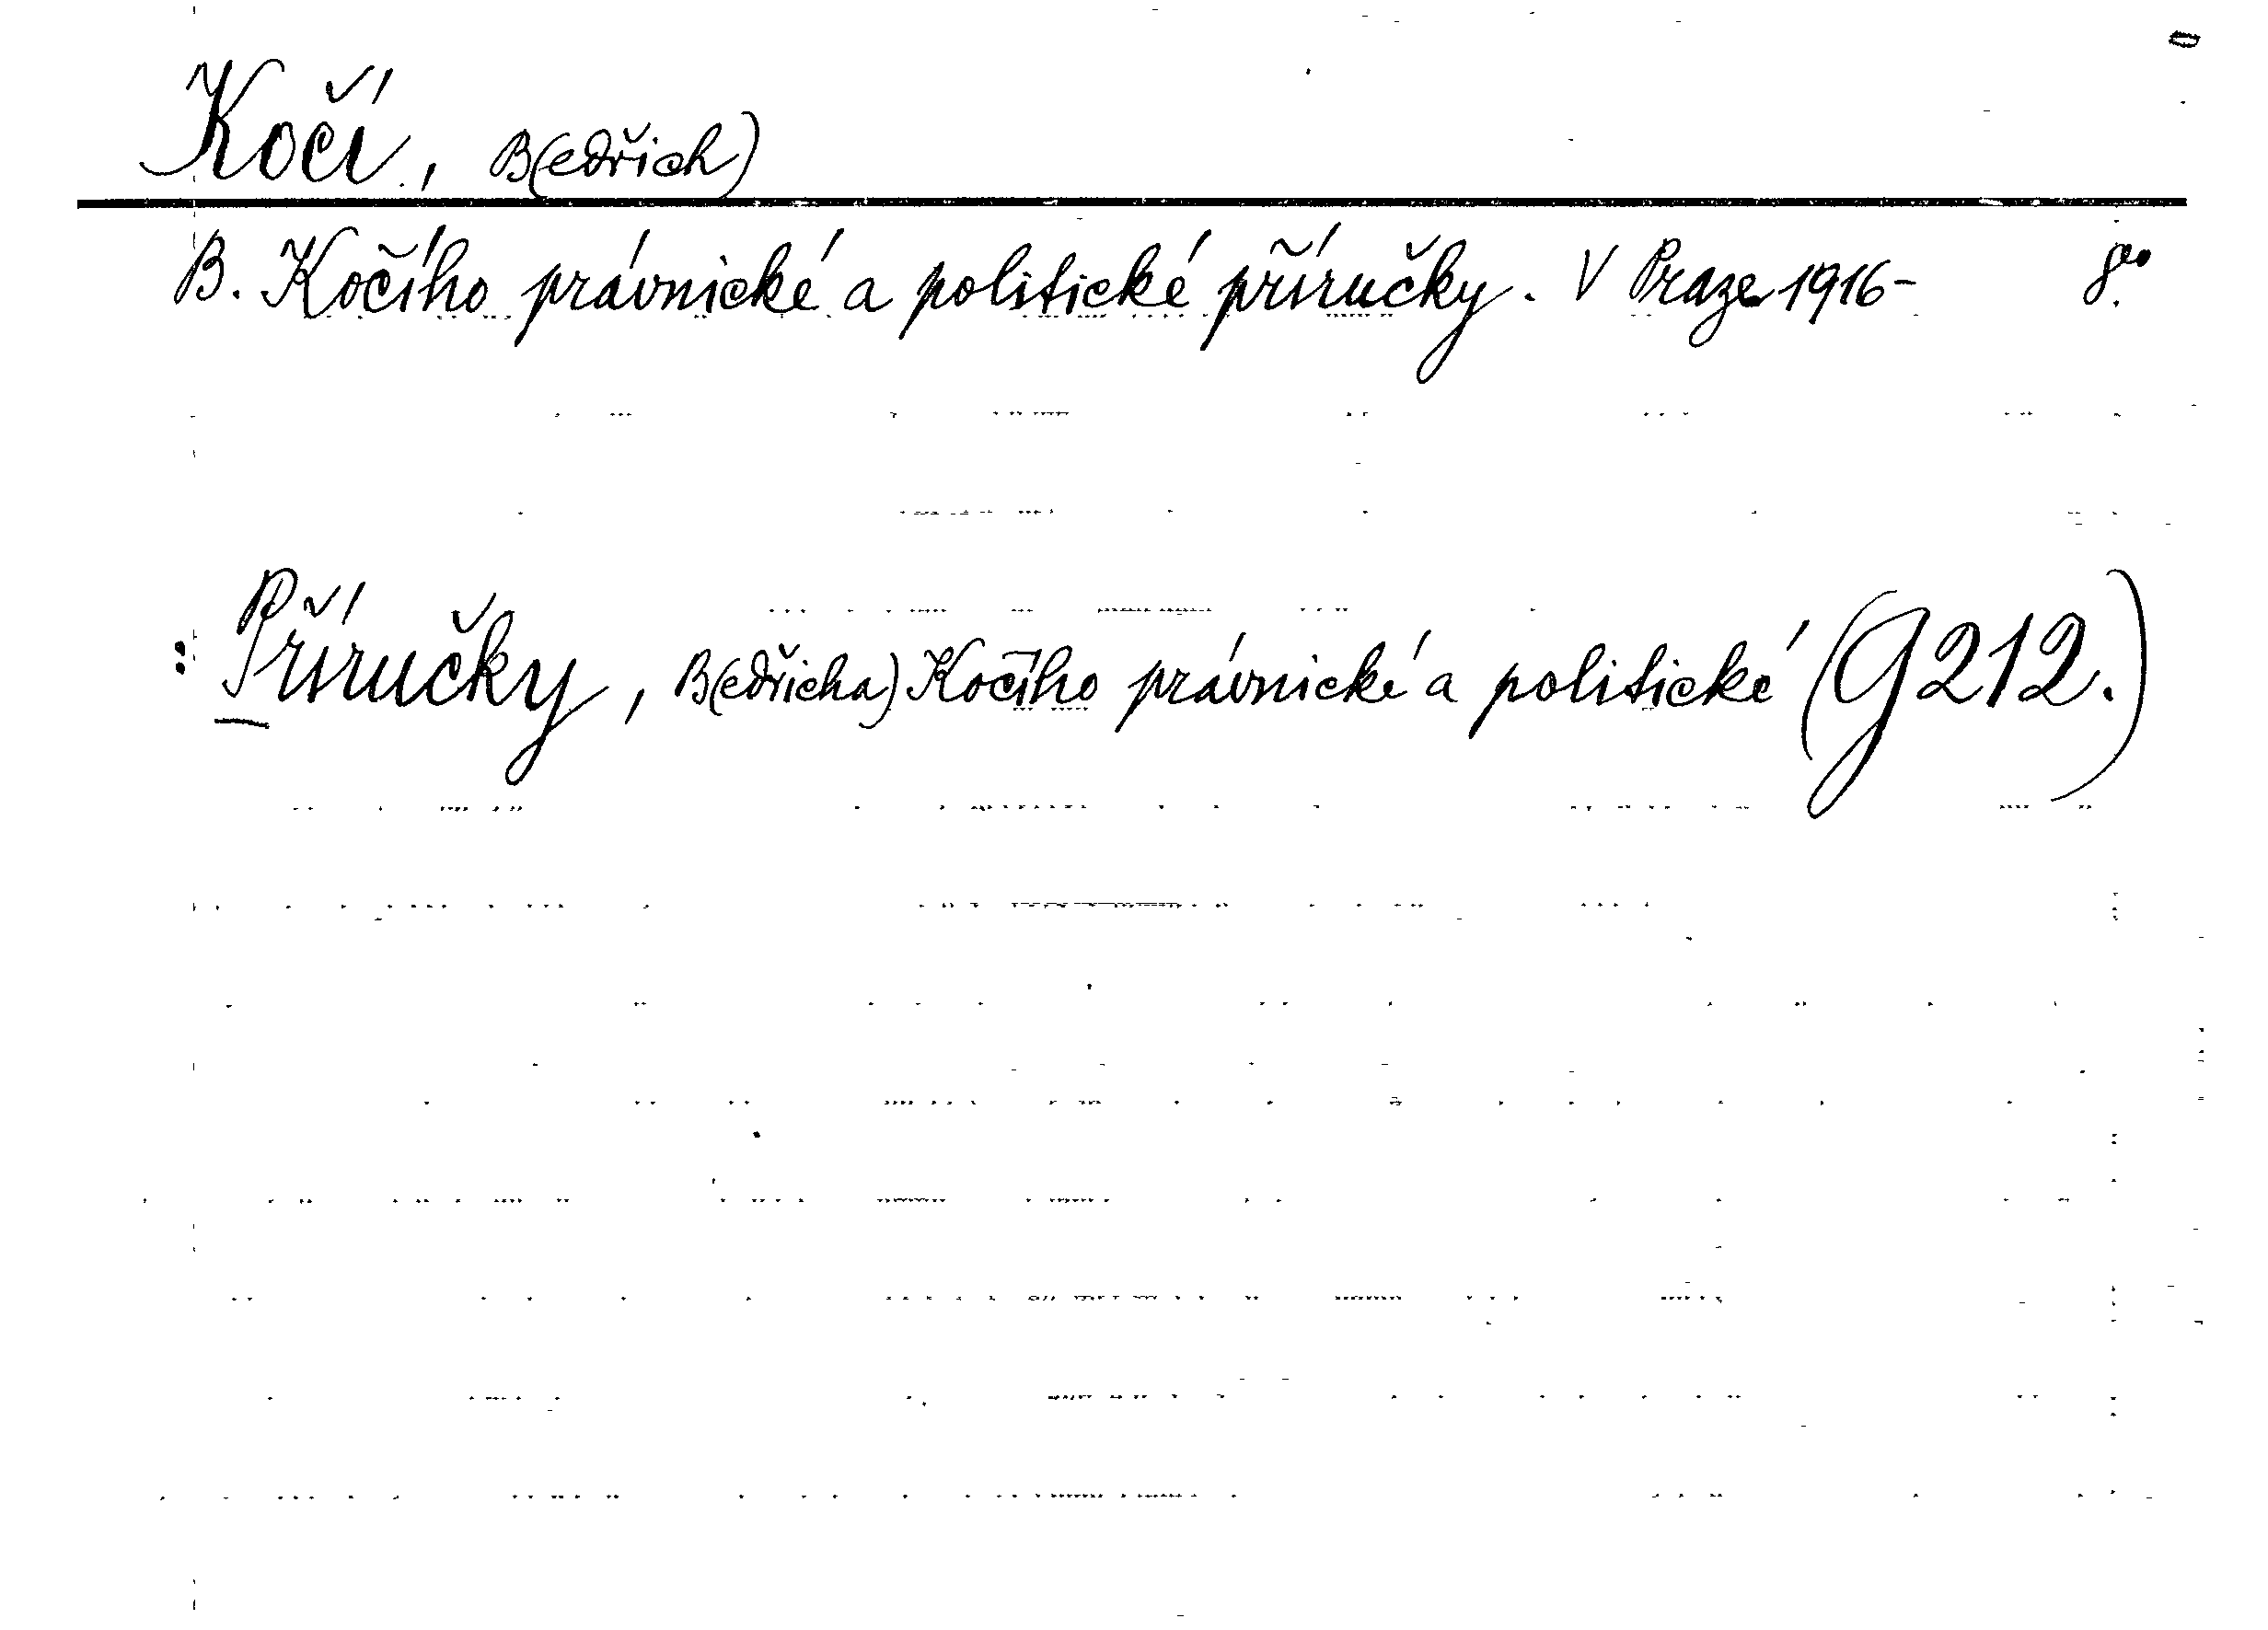 Kočí, B(edřich)
B. Kočího právnické a politické příručky. V Praze 1916- 8º.
: Příručky, B(edřicha) Kočího právnické a politické (G 212.)